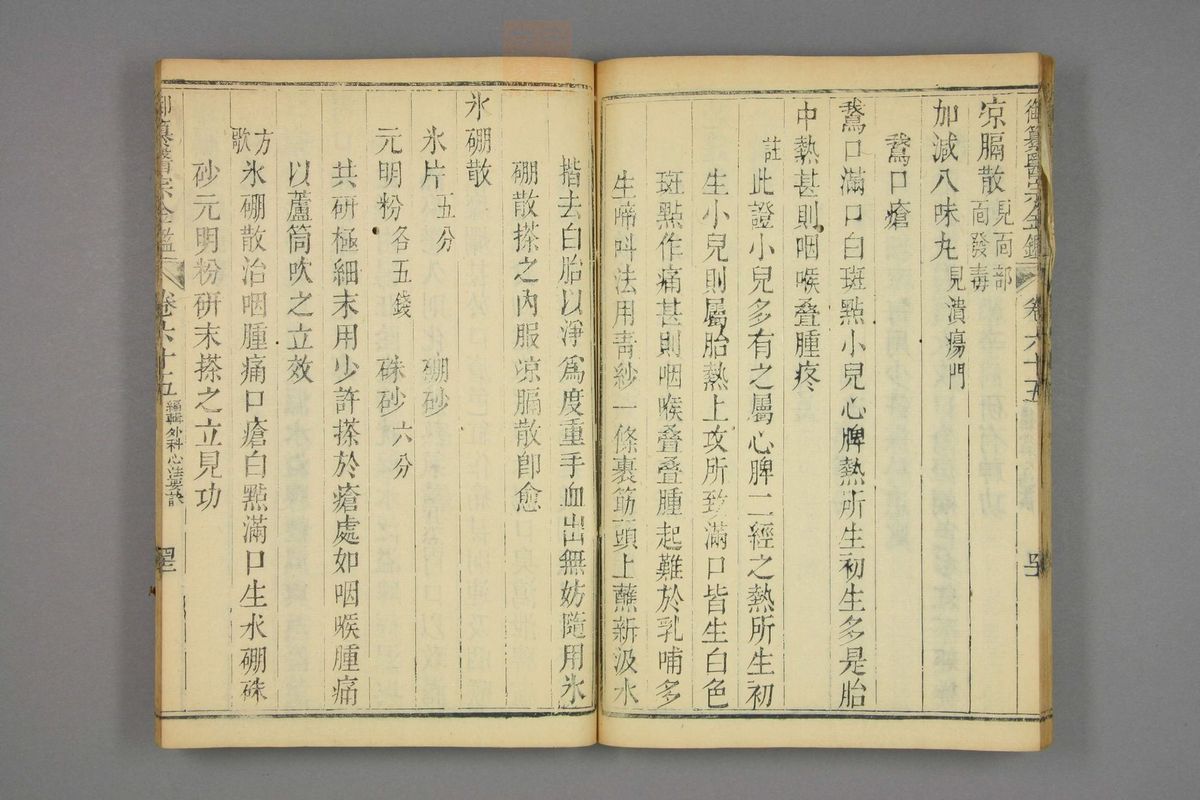 御纂醫宗金鑑 卷六十五
涼膈散見面部面發毒
加減八味丸見潰瘍門
鵞口瘡
鵞口滿口白斑㸃小兒心脾熱所生初生多是胎
中熱甚則咽喉叠腫疼
註此證小兒多有之屬心脾二經之熱所生初
生小兒則屬胎熱上攻所致滿口皆生白色
斑㸃作痛甚則咽喉叠叠腫起難於乳哺多
生啼呌法用青紗一條裹筯頭上蘸新汲水
揩去白胎以淨爲度重手血出無妨隨用氷
硼散搽之内服涼膈散卽愈
氷硼散
氷片五分 硼砂
元明粉各五錢 硃砂六分
共研極細末用少許搽於瘡處如咽喉腫痛
以蘆筒吹之立效
方歌氷硼散治咽腫痛口瘡白㸃滿口生氷硼硃
砂元明粉研末搽之立見功
御纂醫宗金鑑 卷六十五 編輯外科心法要訣